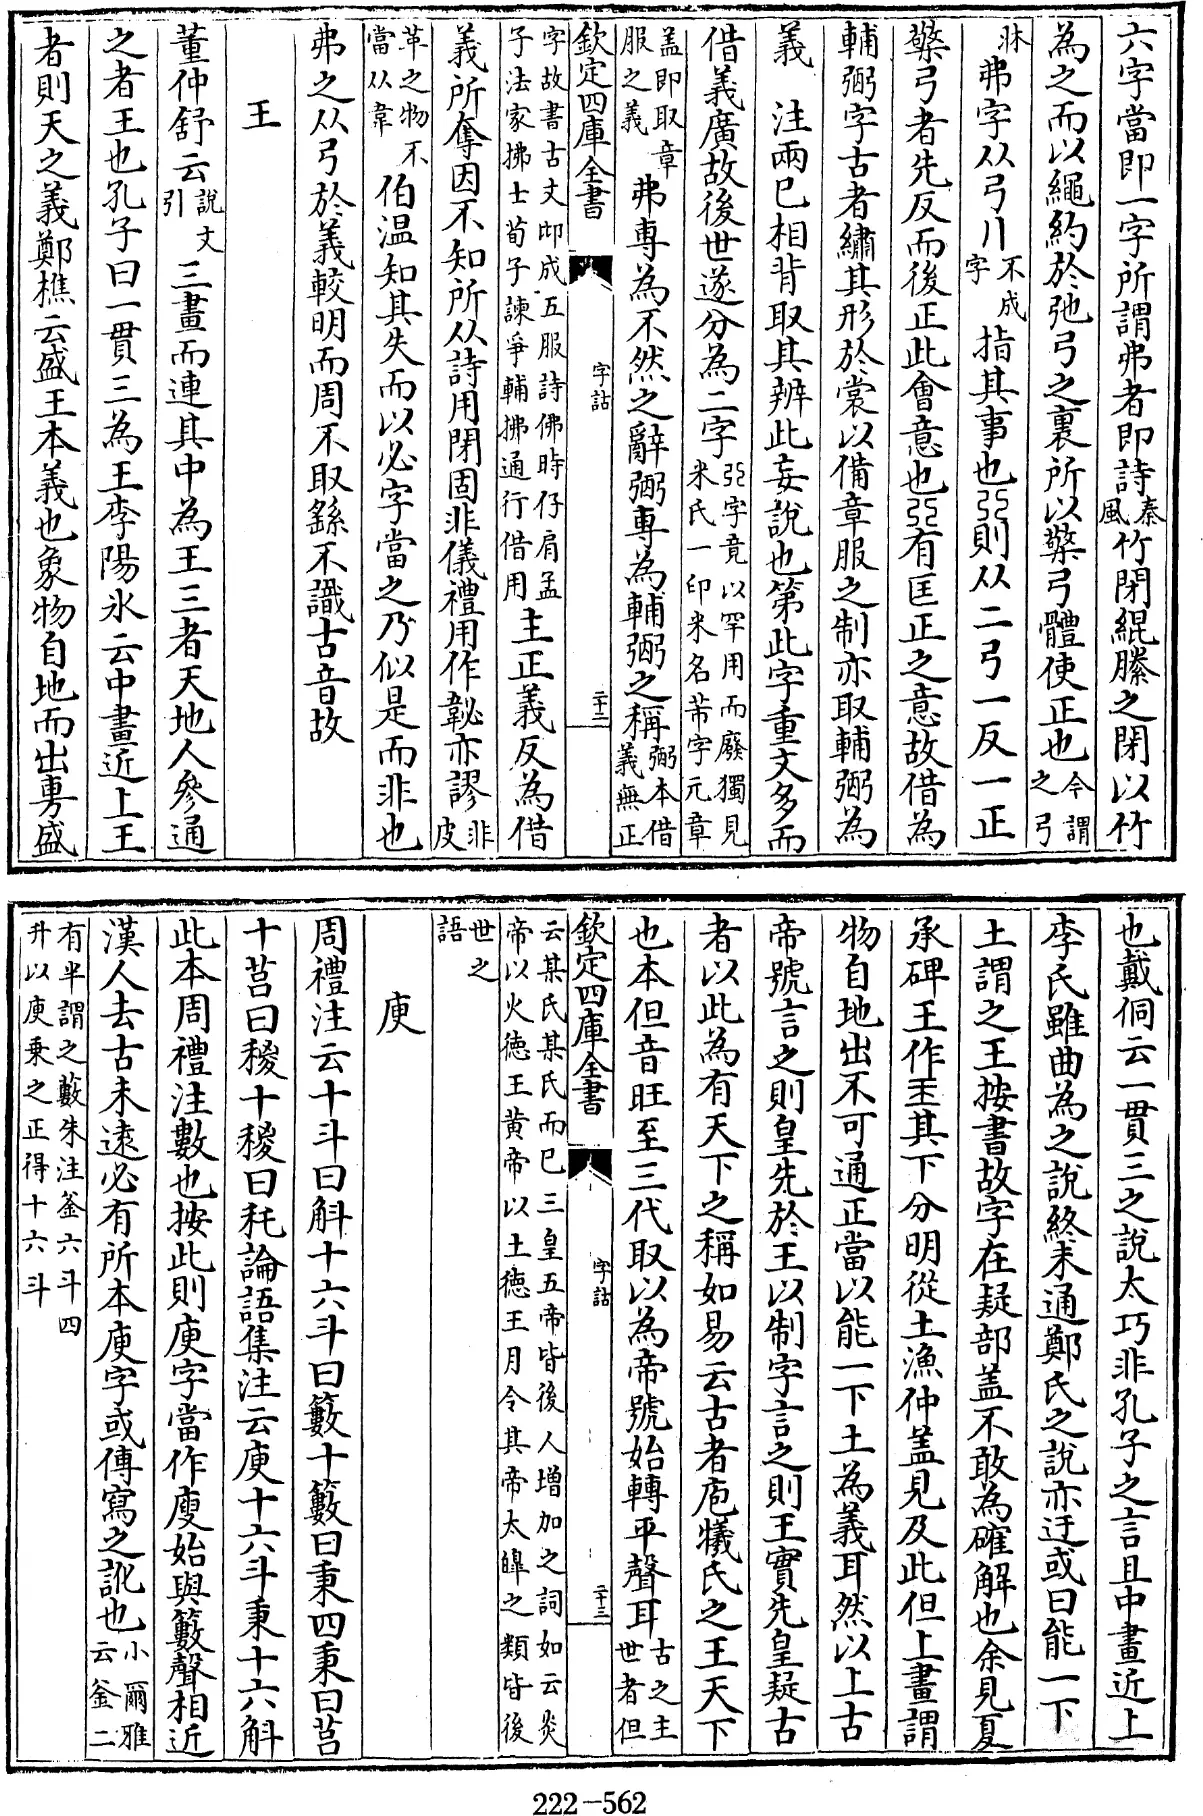 六字當即一字所謂弗者即詩秦風竹閉緄縢之閉以竹
為之而以繩約於弛弓之裏所以檠弓體使正也今謂之弓
牀弗字从弓丿丨不成字指其事也𢏜則从二弓一反一正
檠弓者先反而後正此會意也𢏜有匡正之意故借為
輔弼字古者繡其形於裳以備章服之制亦取輔弼為
義　注兩已相背取其辨此妄說也第此字重文多而
借義廣故後世遂分為二字𢏜字竟以罕用而廢獨見米氏一印米名芾字元章
盖即取章服之義弗專為不然之辭弼專為輔弼之稱弼本借義無正
欽定四庫全書　字詁　二十二
字故書古文卽成五服詩佛時仔肩孟子法家拂士荀子諫爭輔拂通行借用主正義反為借
義所奪因不知所从詩用閉固非儀禮用作䪐亦謬非皮
革之物不當从韋伯温知其失而以必字當之乃似是而非也
弗之从弓於義較明而周不取繇不識古音故
王
董仲舒云說文引三畫而連其中為王三者天地人參通
之者王也孔子曰一貫三為王李陽氷云中畫近上王
者則天之義鄭樵云盛王本義也象物自地而出旉盛
也戴侗云一貫三之說太巧非孔子之言且中畫近上
李氏雖曲為之說終未通鄭氏之說亦迂或曰能一下
土謂之王按書故字在疑部盖不敢為確解也余見夏
承碑王作𤣩其下分明從土漁仲盖見及此但上畫謂
物自地出不可通正當以能一下土為義耳然以上古
帝號言之則皇先於王以制字言之則王實先皇疑古
者以此為有天下之稱如易云古者庖犧氏之王天下
也本但音旺至三代取以為帝號始轉平聲耳古之主世者但
欽定四庫全書　字詁　二十三
云某氏某氏而已三皇五帝皆後人增加之詞如云炎帝以火徳王黄帝以土徳王月令其帝太皥之類皆後
世之語
庾
周禮注云十斗曰斛十六斗曰籔十籔曰秉四秉曰筥
十筥曰稯十稯曰秅論語集注云庾十六斗秉十六斛
此本周禮注數也按此則庾字當作廋始與籔聲相近
漢人去古未遠必有所本庾字或傳寫之訛也小爾雅云釜二
有半謂之籔朱注釜六斗四升以庾乗之正得十六斗
222-562